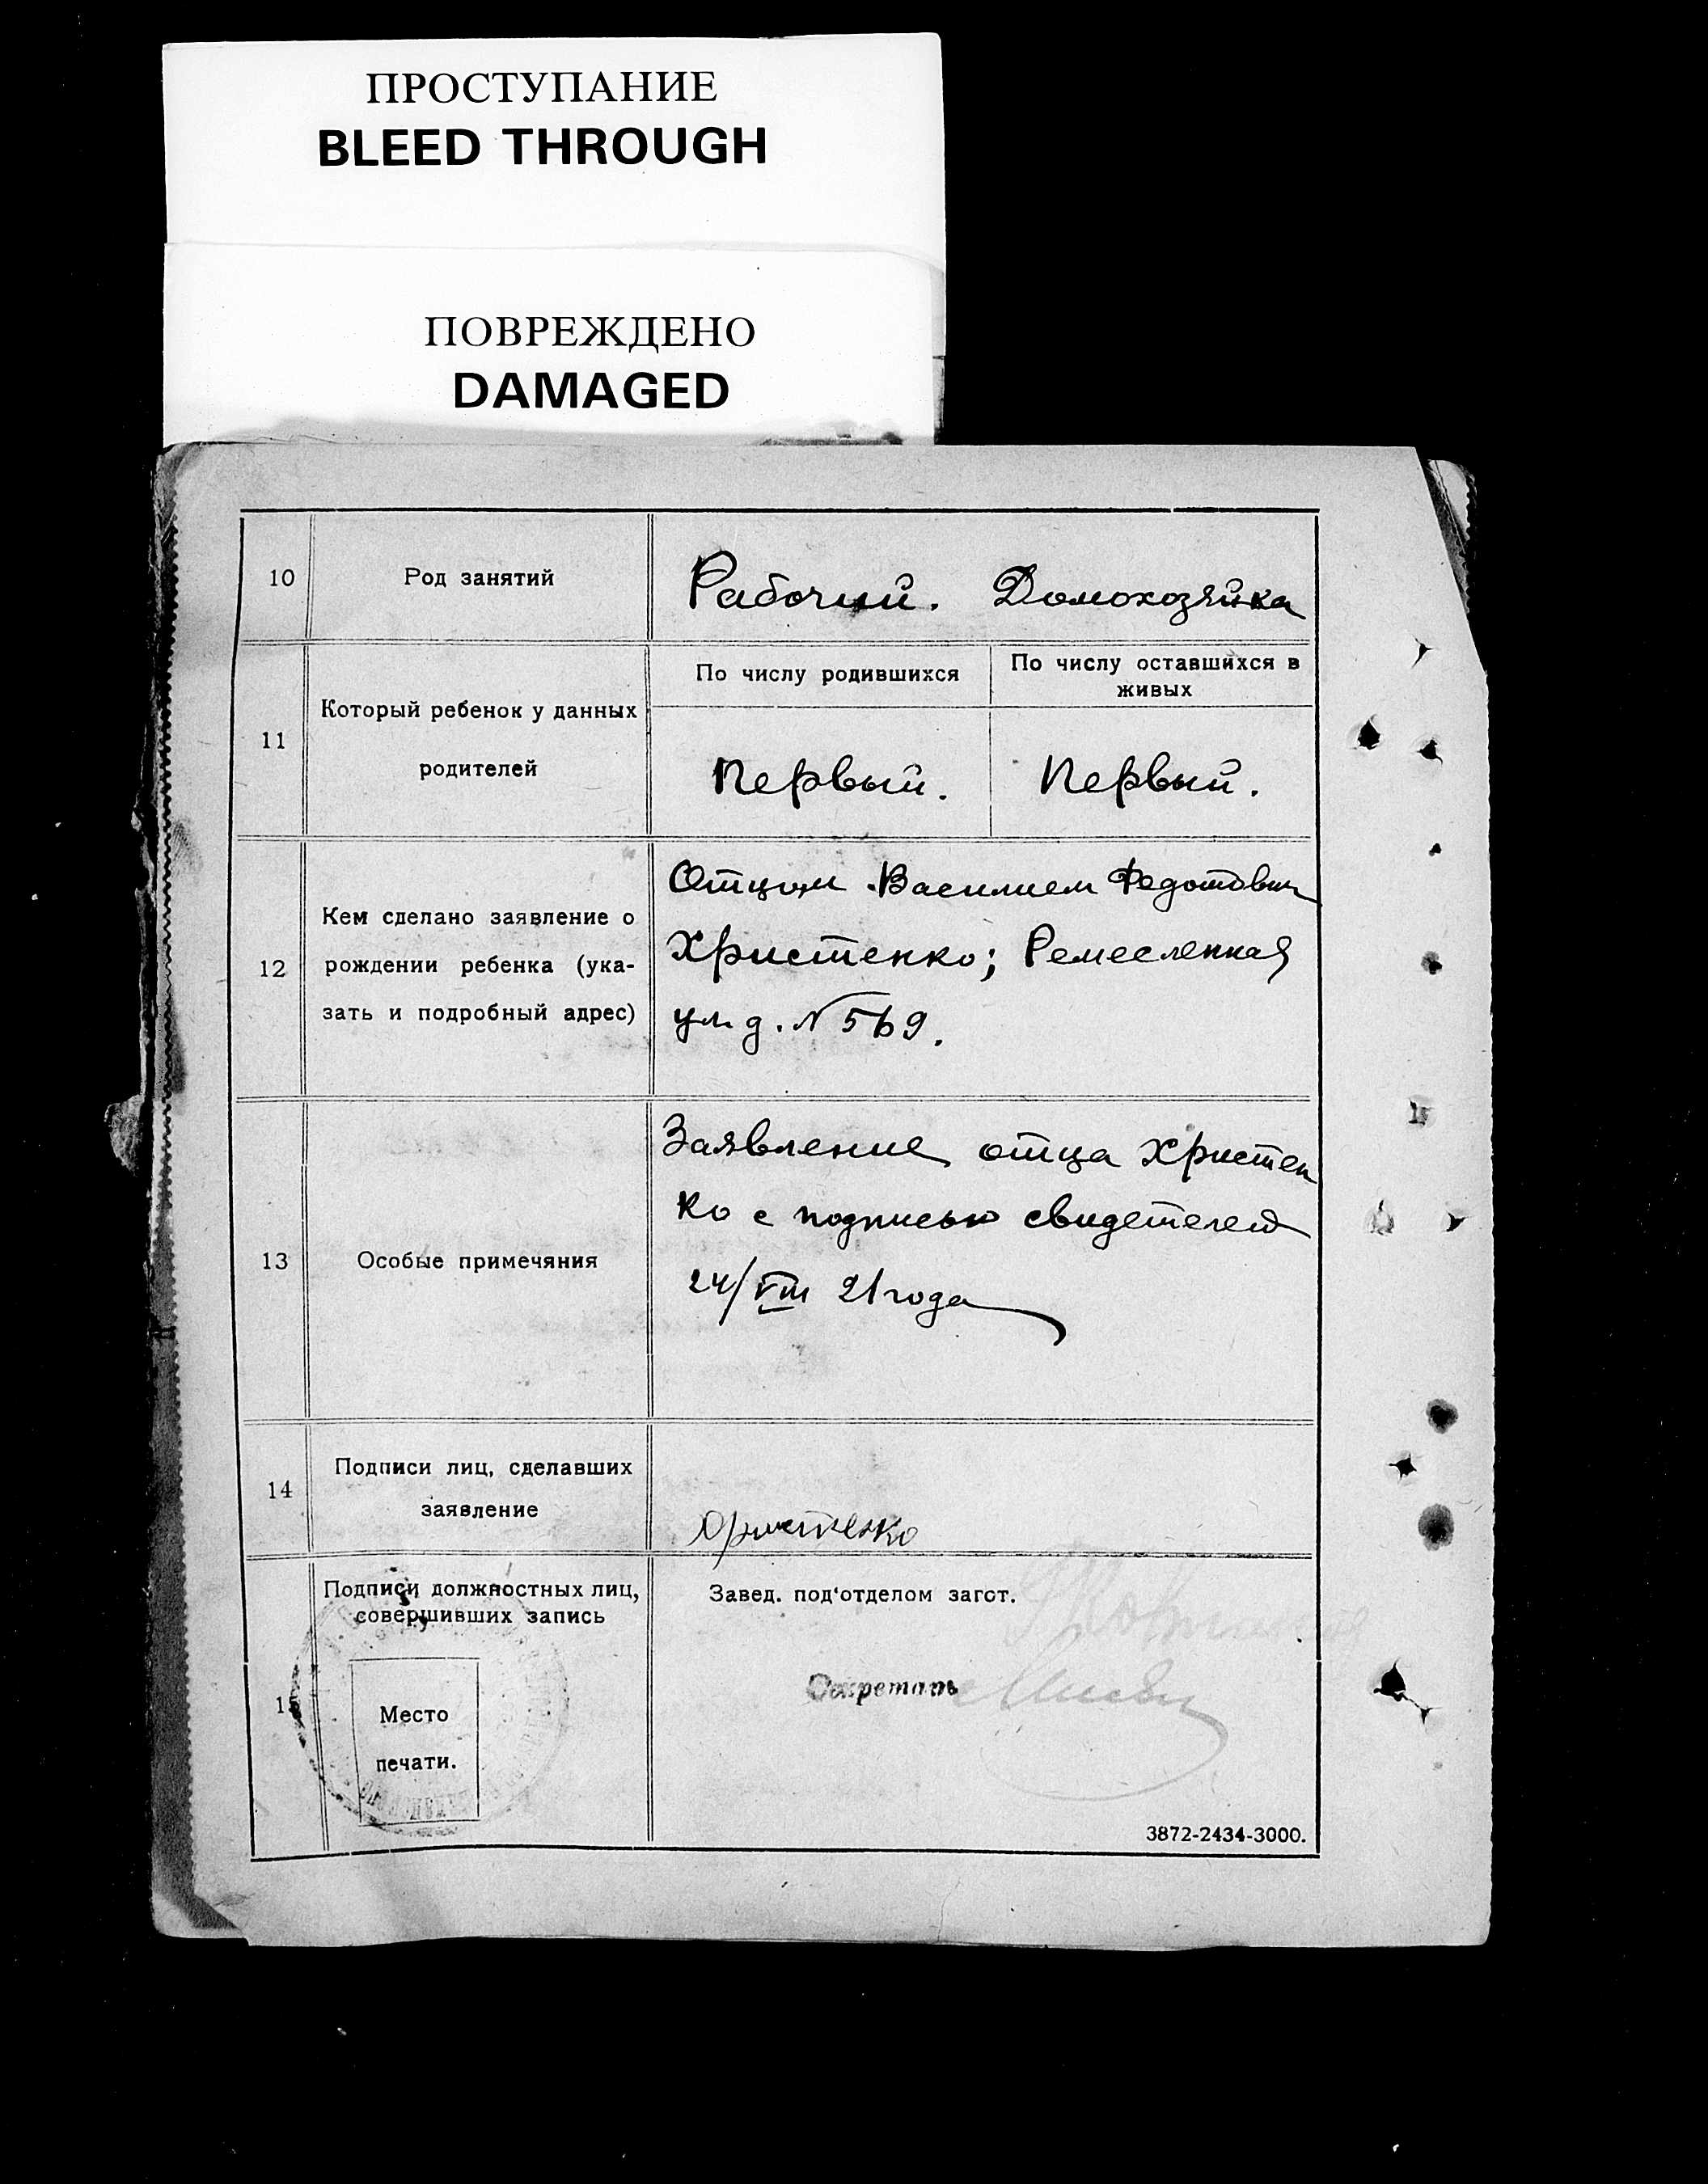 ПРОСТУПАНИЕ
BLEED THROUGH
ПОВРЕЖДЕНО
DAMAGED
10
Род занятий
Рабочий. Домохозяйка
11
Который ребенок у данных
родителей
По числу родившихся
По числу оставшихся в
живых
Первый.
Первый.
12
Кем сделано заявление о
рождении ребенка (ука-
зать и подробный адрес)
Отцом Василием Федотович
Христенко; Ремесленная
ул. д. № 569.
13
Особые примечяния
Заявление отца Христен
ко с подписью свидетелей
24/VIII 21 года
14
Подписи лиц, сделавших
заявление
Христенко
Подписи должностных лиц,
совершивших запись
Место
печати.
Завед. под'отделом загот.
Секретарь
3872-2434-3000.